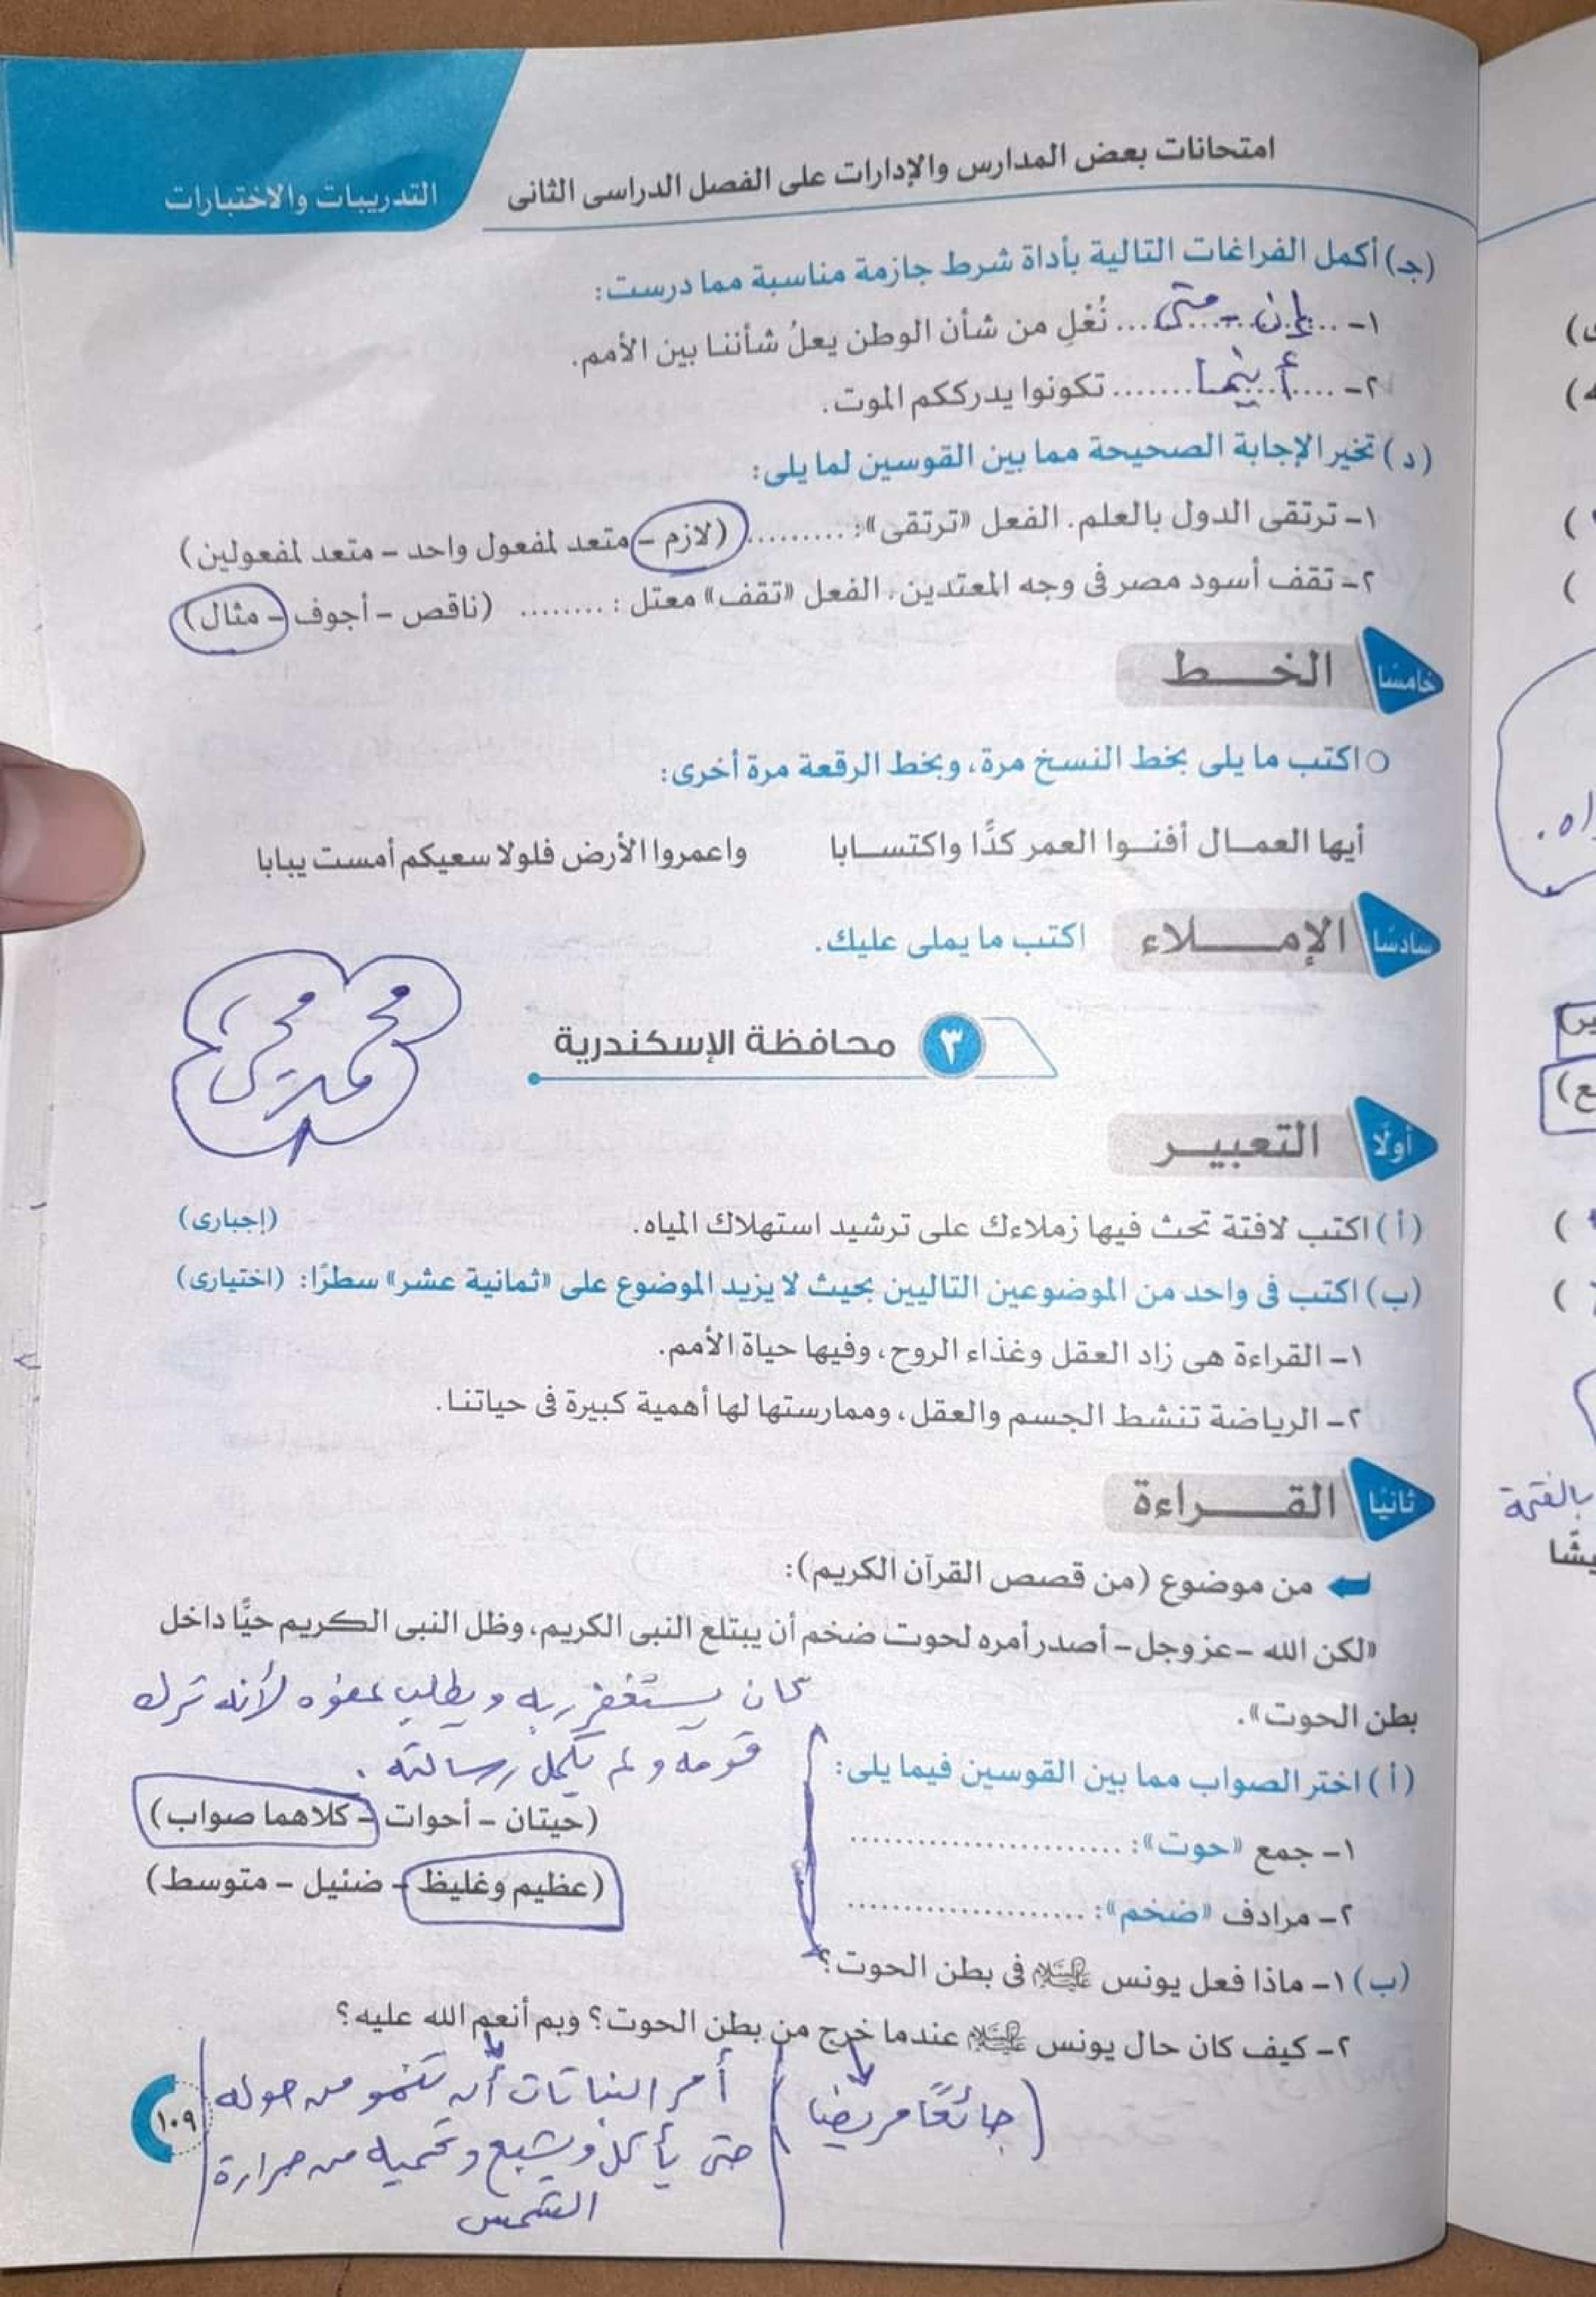 امتحانات بعض المدارس والإدارات على الفصل الدراسى الثانى
التدريبات والاختبارات
(جـ) أكمل الفراغات التالية بأداة شرط جازمة مناسبة مما درست:
١- .... إن - متى .... نُعْلِ من شأن الوطن يعلُ شأننا بين الأمم.
٢- .... أينما .... تكونوا يدرككم الموت.
(د) تخير الإجابة الصحيحة مما بين القوسين لما يلى:
١- ترتقى الدول بالعلم. الفعل «ترتقى»: ......... (لازم - متعد لمفعول واحد - متعد لمفعولين)
٢- تقف أسود مصر فى وجه المعتدين. الفعل «تقف» معتل: ........ (ناقص - أجوف - مثال)
خامسًا الخــــط
اكتب ما يلى بخط النسخ مرة، وبخط الرقعة مرة أخرى:
أيها العمــال أفنــوا العمر كدًّا واكتســابا واعمروا الأرض فلولا سعيكم أمست يبابا
سادسًا الإمــــلاء اكتب ما يملى عليك.
٣ محافظة الإسكندرية
أولًا التعبيــر
(أ) اكتب لافتة تحث فيها زملاءك على ترشيد استهلاك المياه. (إجبارى)
(ب) اكتب فى واحد من الموضوعين التاليين بحيث لا يزيد الموضوع على «ثمانية عشر» سطرًا: (اختيارى)
١- القراءة هى زاد العقل وغذاء الروح، وفيها حياة الأمم.
٢- الرياضة تنشط الجسم والعقل، وممارستها لها أهمية كبيرة فى حياتنا.
ثانيًا القــــراءة
من موضوع (من قصص القرآن الكريم):
«لكن الله -عزوجل- أصدر أمره لحوت ضخم أن يبتلع النبى الكريم، وظل النبى الكريم حيًّا داخل
بطن الحوت».
كان يستغفر ربه ويطلب عفوه لأنه ترك
قومه ولم يكمل رسالته.
(أ) اختر الصواب مما بين القوسين فيما يلى:
١- جمع «حوت»: ........................ (حيتان - أحوات - كلاهما صواب)
٢- مرادف «ضخم»: ..................... (عظيم وغليظ - ضئيل - متوسط)
(ب) ١- ماذا فعل يونس عليه السلام فى بطن الحوت؟
٢- كيف كان حال يونس عليه السلام عندما خرج من بطن الحوت؟ وبم أنعم الله عليه؟
(جائعًا مريضا)
أمر النباتات أن تنمو من حوله
حتى يأكل ويشبع وتحميه من حرارة
الشمس
١٠٩
بالفتحة